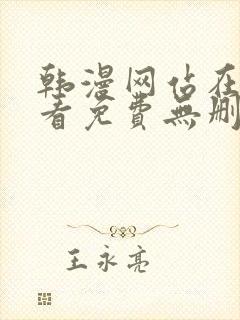 韩漫网站在
看免費無删
王永亮